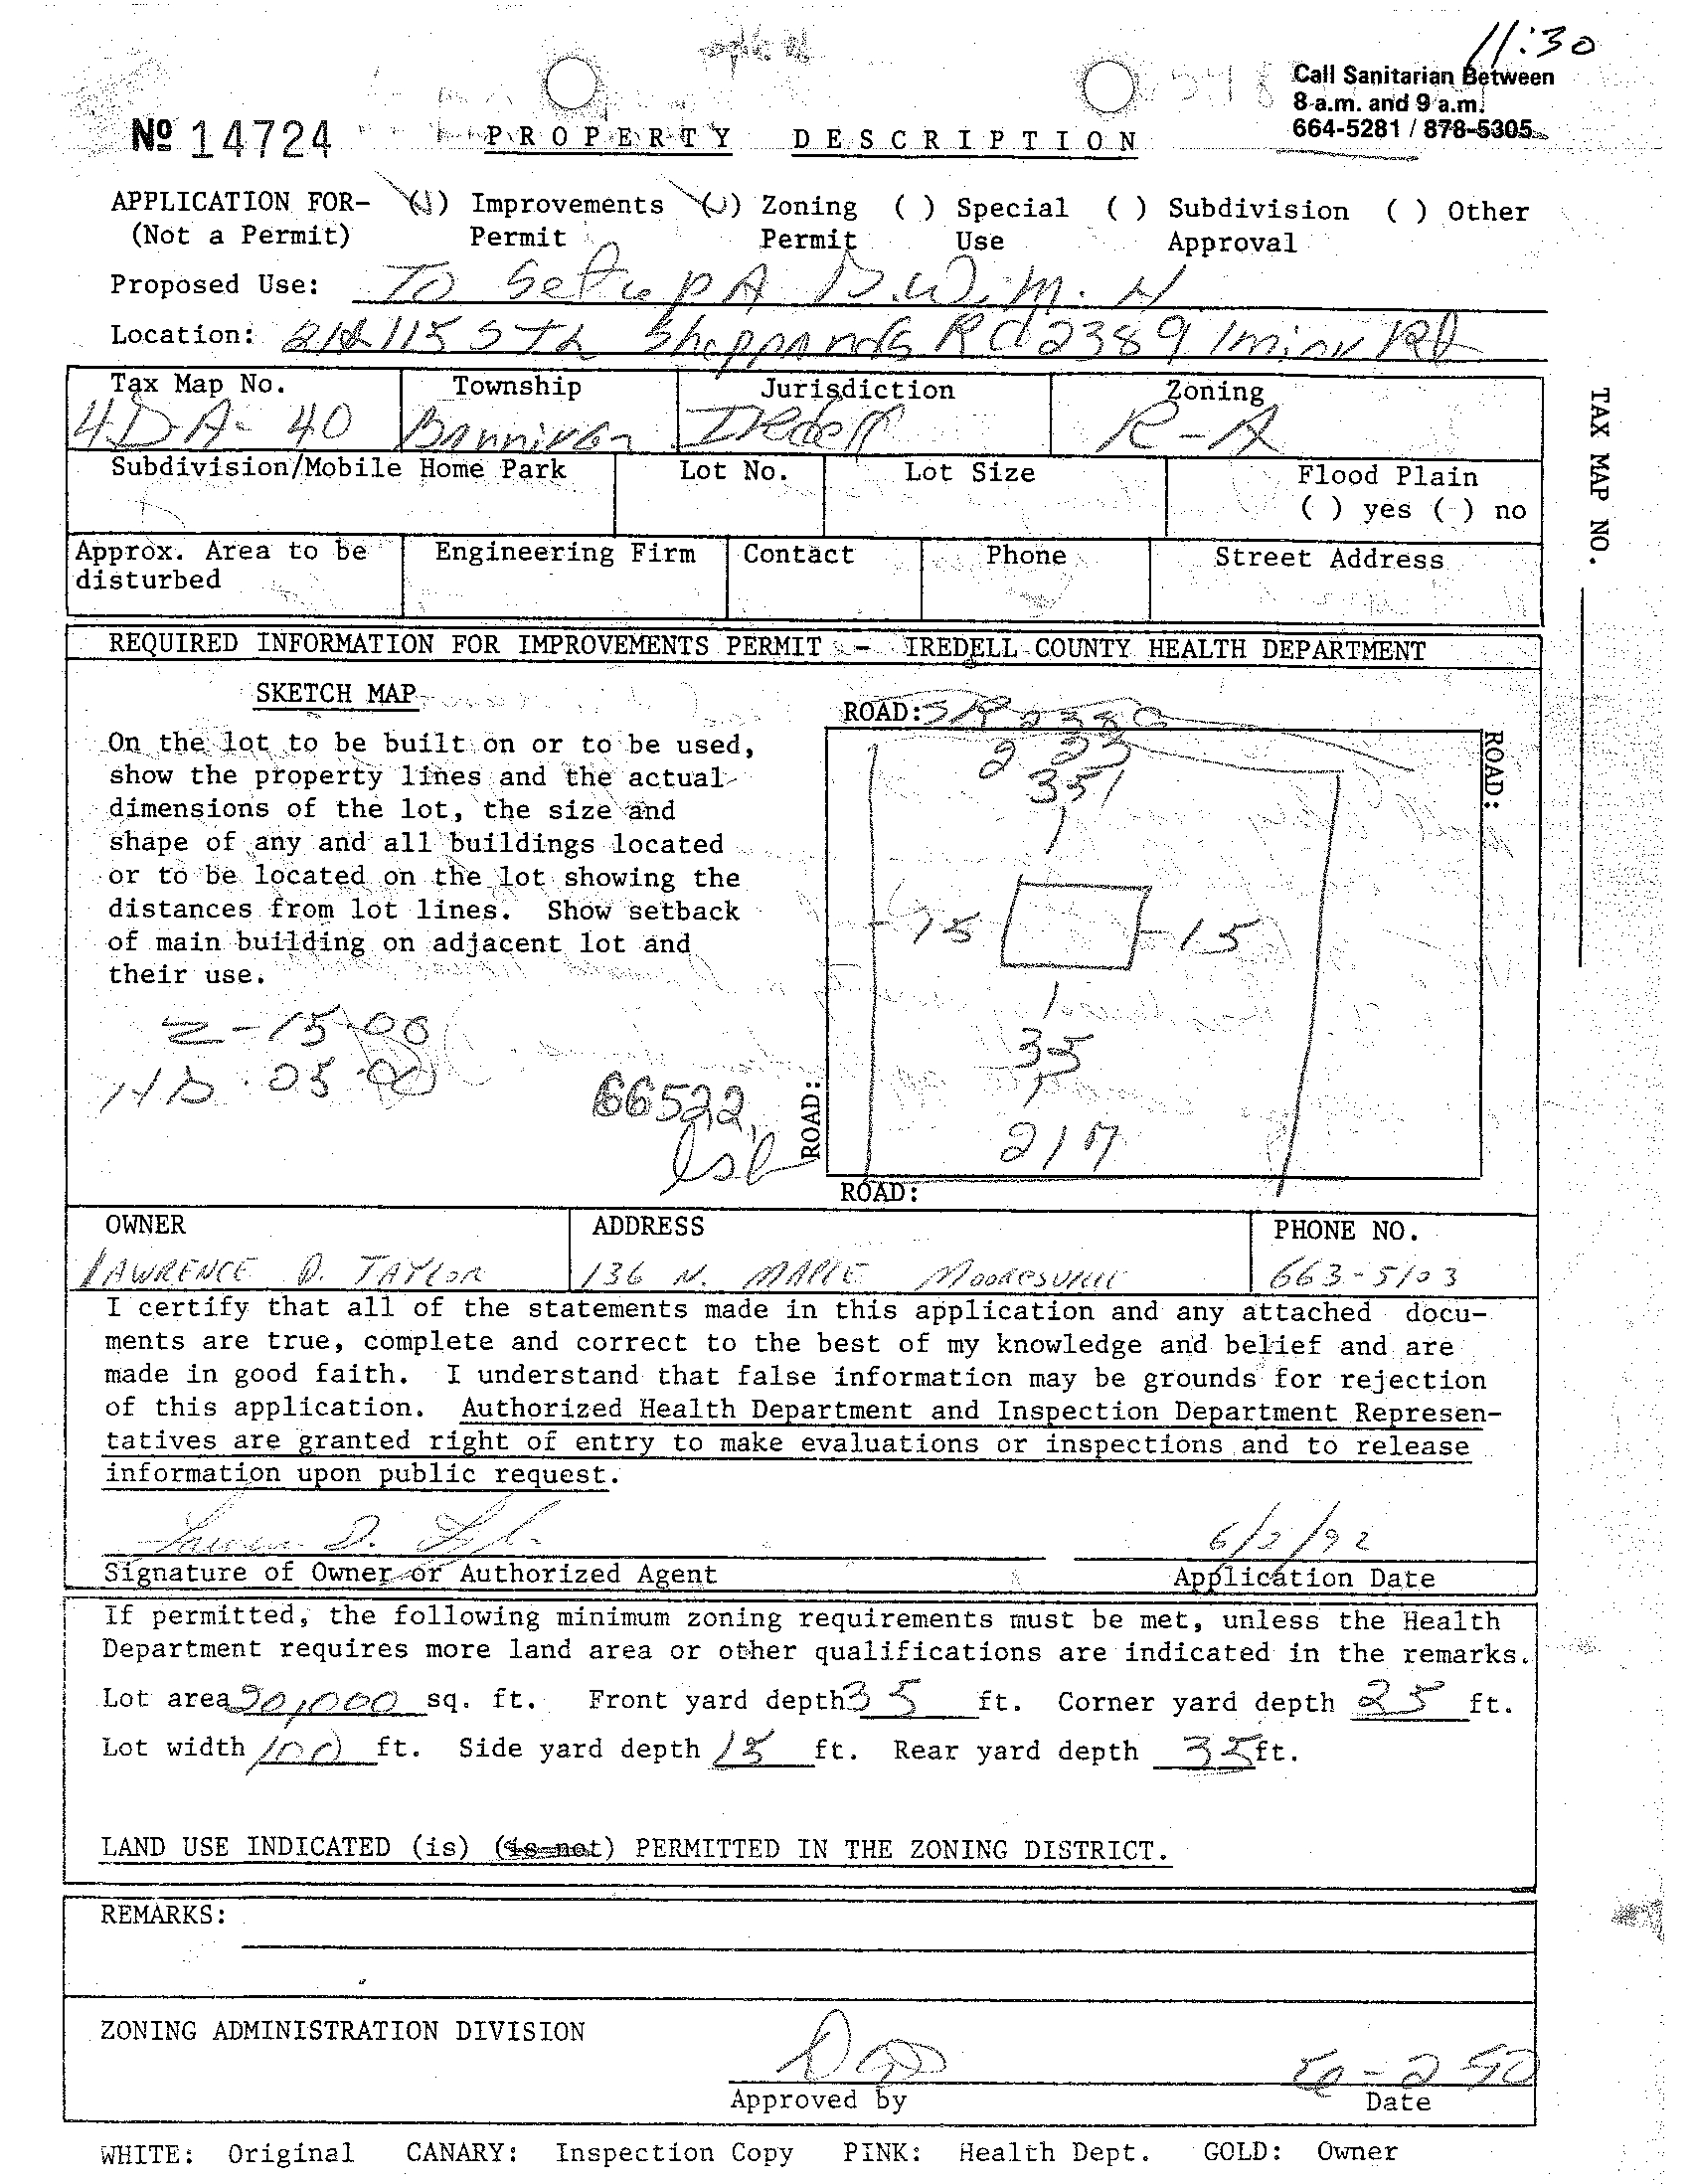 11:30
Call Sanitarian Between
8 a.m. and 9 a.m.
664-5281 / 878-5305
Nº 14724 PROPERTY DESCRIPTION
APPLICATION FOR- (✓) Improvements (✓) Zoning ( ) Special ( ) Subdivision ( ) Other
(Not a Permit) Permit Permit Use Approval
Proposed Use: To Set up A D.W.M.H
Location: 115 STh Sheppards Rd 2389 1 mi on Rt
Tax Map No. Township Jurisdiction Zoning
4D-A-40 Iredell R-A
Subdivision/Mobile Home Park Lot No. Lot Size Flood Plain
( ) yes ( ) no
Approx. Area to be Engineering Firm Contact Phone Street Address
disturbed
TAX MAP NO.
REQUIRED INFORMATION FOR IMPROVEMENTS PERMIT - IREDELL COUNTY HEALTH DEPARTMENT
SKETCH MAP
On the lot to be built on or to be used,
show the property lines and the actual
dimensions of the lot, the size and
shape of any and all buildings located
or to be located on the lot showing the
distances from lot lines. Show setback
of main building on adjacent lot and
their use.
Z-15.00
HD.05.00
66522
lsb
ROAD: SR 2389
ROAD:
223
35'
15 15
35
217
ROAD:
ROAD:
OWNER ADDRESS PHONE NO.
LAWRENCE D. TAYLOR 136 N. MAPLE MOORESVILLE 663-5103
I certify that all of the statements made in this application and any attached docu-
ments are true, complete and correct to the best of my knowledge and belief and are
made in good faith. I understand that false information may be grounds for rejection
of this application. Authorized Health Department and Inspection Department Represen-
tatives are granted right of entry to make evaluations or inspections and to release
information upon public request.
6/2/92
Signature of Owner or Authorized Agent Application Date
If permitted, the following minimum zoning requirements must be met, unless the Health
Department requires more land area or other qualifications are indicated in the remarks.
Lot area 20,000 sq. ft. Front yard depth 35 ft. Corner yard depth 25 ft.
Lot width 100 ft. Side yard depth 15 ft. Rear yard depth 35 ft.
LAND USE INDICATED (is) (is not) PERMITTED IN THE ZONING DISTRICT.
REMARKS:
ZONING ADMINISTRATION DIVISION
Approved by Date
WHITE: Original CANARY: Inspection Copy PINK: Health Dept. GOLD: Owner